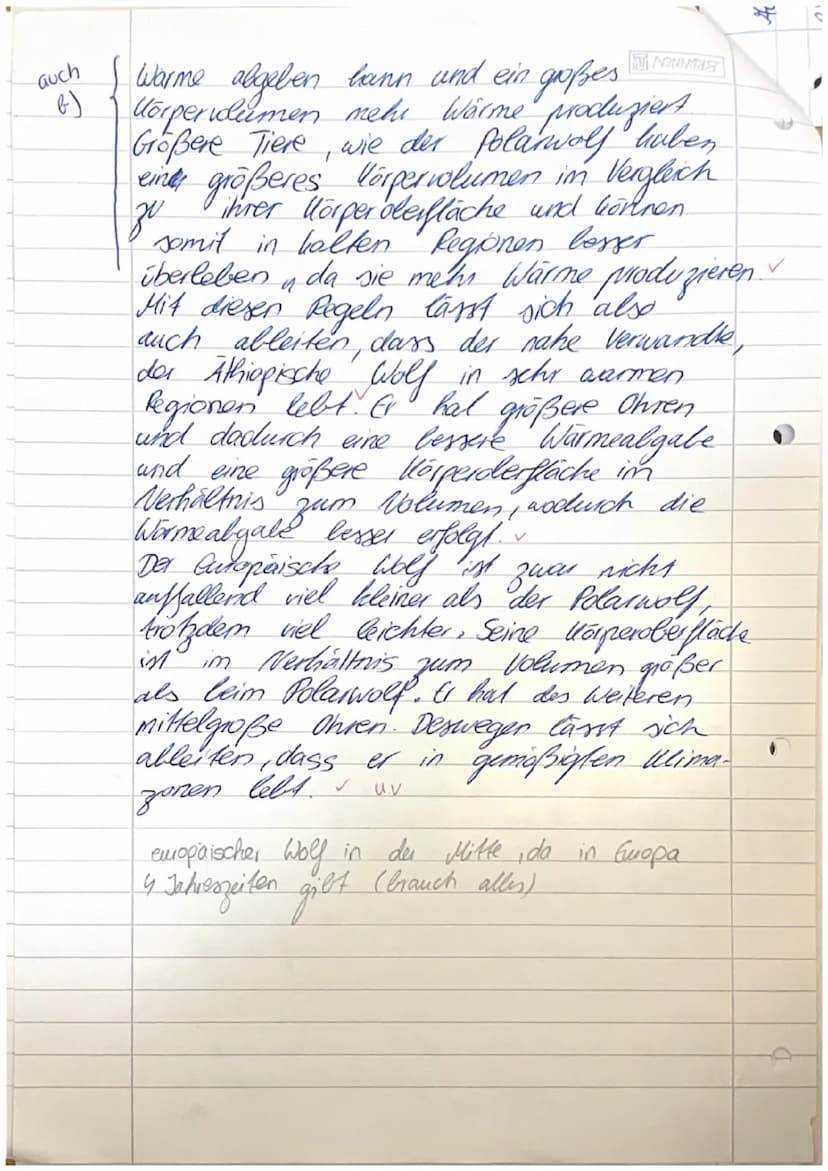 auch
b)
Wärme abgeben kann und ein großes
BRUNNEN
Körpervolumen mehr Wärme produziert
Größere Tiere, wie der Polarwolf haben
ein größeres Körpervolumen im Vergleich
zu ihrer Körperoberfläche und können
somit in kalten Regionen besser
überleben, da sie mehr Wärme produzieren. ✓
Mit diesen Regeln lässt sich also
auch ableiten, dass der nahe Verwandte,
der Äthiopische Wolf in sehr warmen
Regionen lebt. ✓ Er hat größere Ohren
und dadurch eine bessere Wärmeabgabe
und eine größere Körperoberfläche im
Verhältnis zum Volumen, wodurch die
Wärmeabgabe besser erfolgt. ✓
Der Europäische Wolf ist zwar nicht
auffallend viel kleiner als der Polarwolf,
trotzdem viel leichter. Seine Körperoberfläche
ist im Verhältnis zum Volumen größer
als beim Polarwolf. Er hat des Weiteren
mittelgroße Ohren. Deswegen lässt sich
ableiten, dass er in gemäßigten Klima-
zonen lebt. ✓
europäischer Wolf in der Mitte, da in Europa
4 Jahreszeiten gibt (brauch alles)